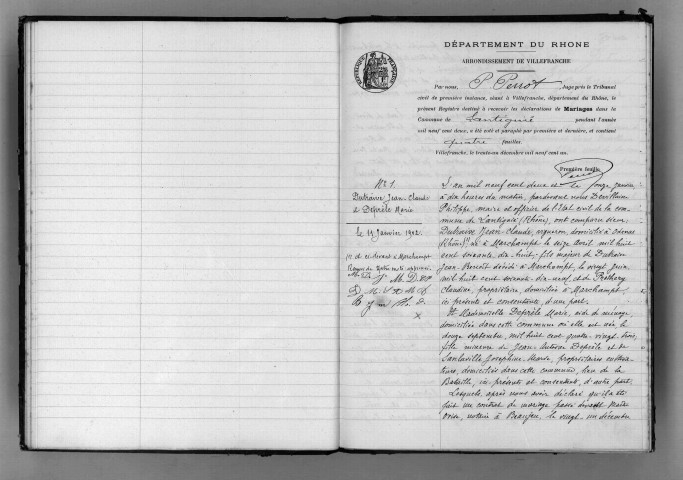 DÉPARTEMENT DU RHONE
ARRONDISSEMENT DE VILLEFRANCHE
RÉPUBLIQUE FRANÇAISE
Par nous, P. Perrot Juge près le Tribunal
civil de première instance, séant à Villefranche, département du Rhône, le
présent Registre destiné à recevoir les déclarations de Mariages dans la
Commune de Lantignié pendant l'année
mil neuf cent deux, a été coté et paraphé par première et dernière, et contient
quatre feuilles
Villefranche, le trente-un décembre mil neuf cent un.
Première feuille
N° 1.
Dutraive Jean Claude
& Deprèle Marie
le 11 Janvier 1902.
(1) et ci-devant à Marchampt
Rayon de notre mots approuvé
J M. D. P
L'an mil neuf cent deux et le onze janvier,
à dix heures du matin, pardevant nous
Philippe, maire et officier de l'état civil de la com-
mune de Lantignié (Rhône), ont comparu sieur
Dutraive Jean Claude, vigneron, domicilié à
(Rhône) (1) né à Marchampt le seize avril mil huit
cent soixante dix-huit; fils majeur de Dutraive
Jean Benoît décédé à Marchampt, le vingt juin
mil huit cent soixante dix-neuf et de
Claudine, propriétaire, domiciliée à Marchampt
ici présente et consentante, d'une part.
Et Mademoiselle Deprèle Marie, aide de ménage,
domiciliée dans cette commune où elle est née le
douze septembre, mil huit cent quatre-vingt-trois,
fille mineure de Jean Antoine Deprèle et de
Josephine Marie, propriétaires cultiva-
teurs, domiciliés dans cette commune, lieu de la
ici présents et consentants, d'autre part.
Lesquels, après nous avoir déclaré qu'il a été
fait un contrat de mariage passé devant Maître
notaire à Beaujeu, le vingt-un décembre